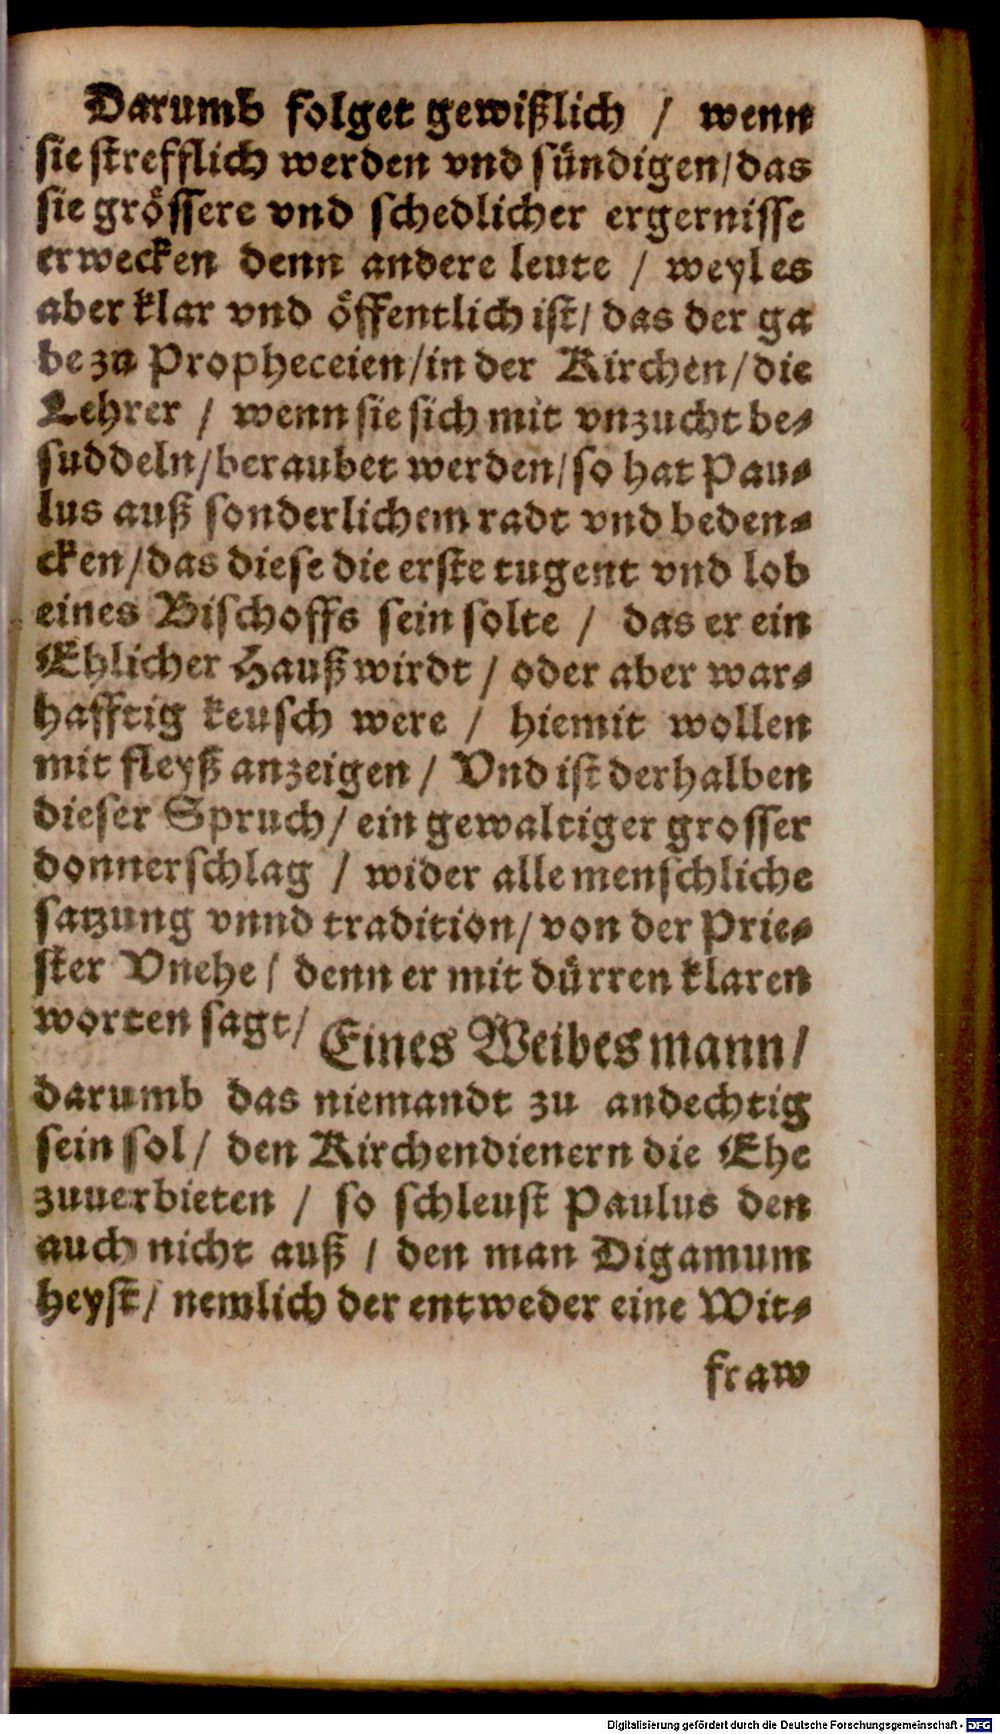 Darumb folget gewißlich / wenn
sie strefflich werden vnd sündigen/das
sie grössere vnd schedlicher ergernisse
erwecken denn andere leute / weyl es
aber klar vnd öffentlich ist/ das der ga
be zu Propheceien/in der Kirchen/die
Lehrer / wenn sie sich mit vnzucht be-
suddeln/beraubet werden/so hat Pau-
lus auß sonderlichem radt vnd beden-
cken/das diese die erste tugent vnd lob
eines Bischoffs sein solte / das er ein
Ehlicher Haußwirdt / oder aber war-
hafftig keusch were / hiemit wollen
mit fleyß anzeigen / Vnd ist derhalben
dieser Spruch/ ein gewaltiger grosser
donnerschlag / wider alle menschliche
satzung vnnd tradition/ von der Prie-
ster Vnehe/ denn er mit dürren klaren
worten sagt/ Eines Weibes mann/
darumb das niemandt zu andechtig
sein sol/ den Kirchendienern die Ehe
zuuerbieten / so schleust Paulus den
auch nicht auß / den man Digamum
heyst/ nemlich der entweder eine Wit-
fraw
Digitalisierung gefördert durch die Deutsche Forschungsgemeinschaft - DFG